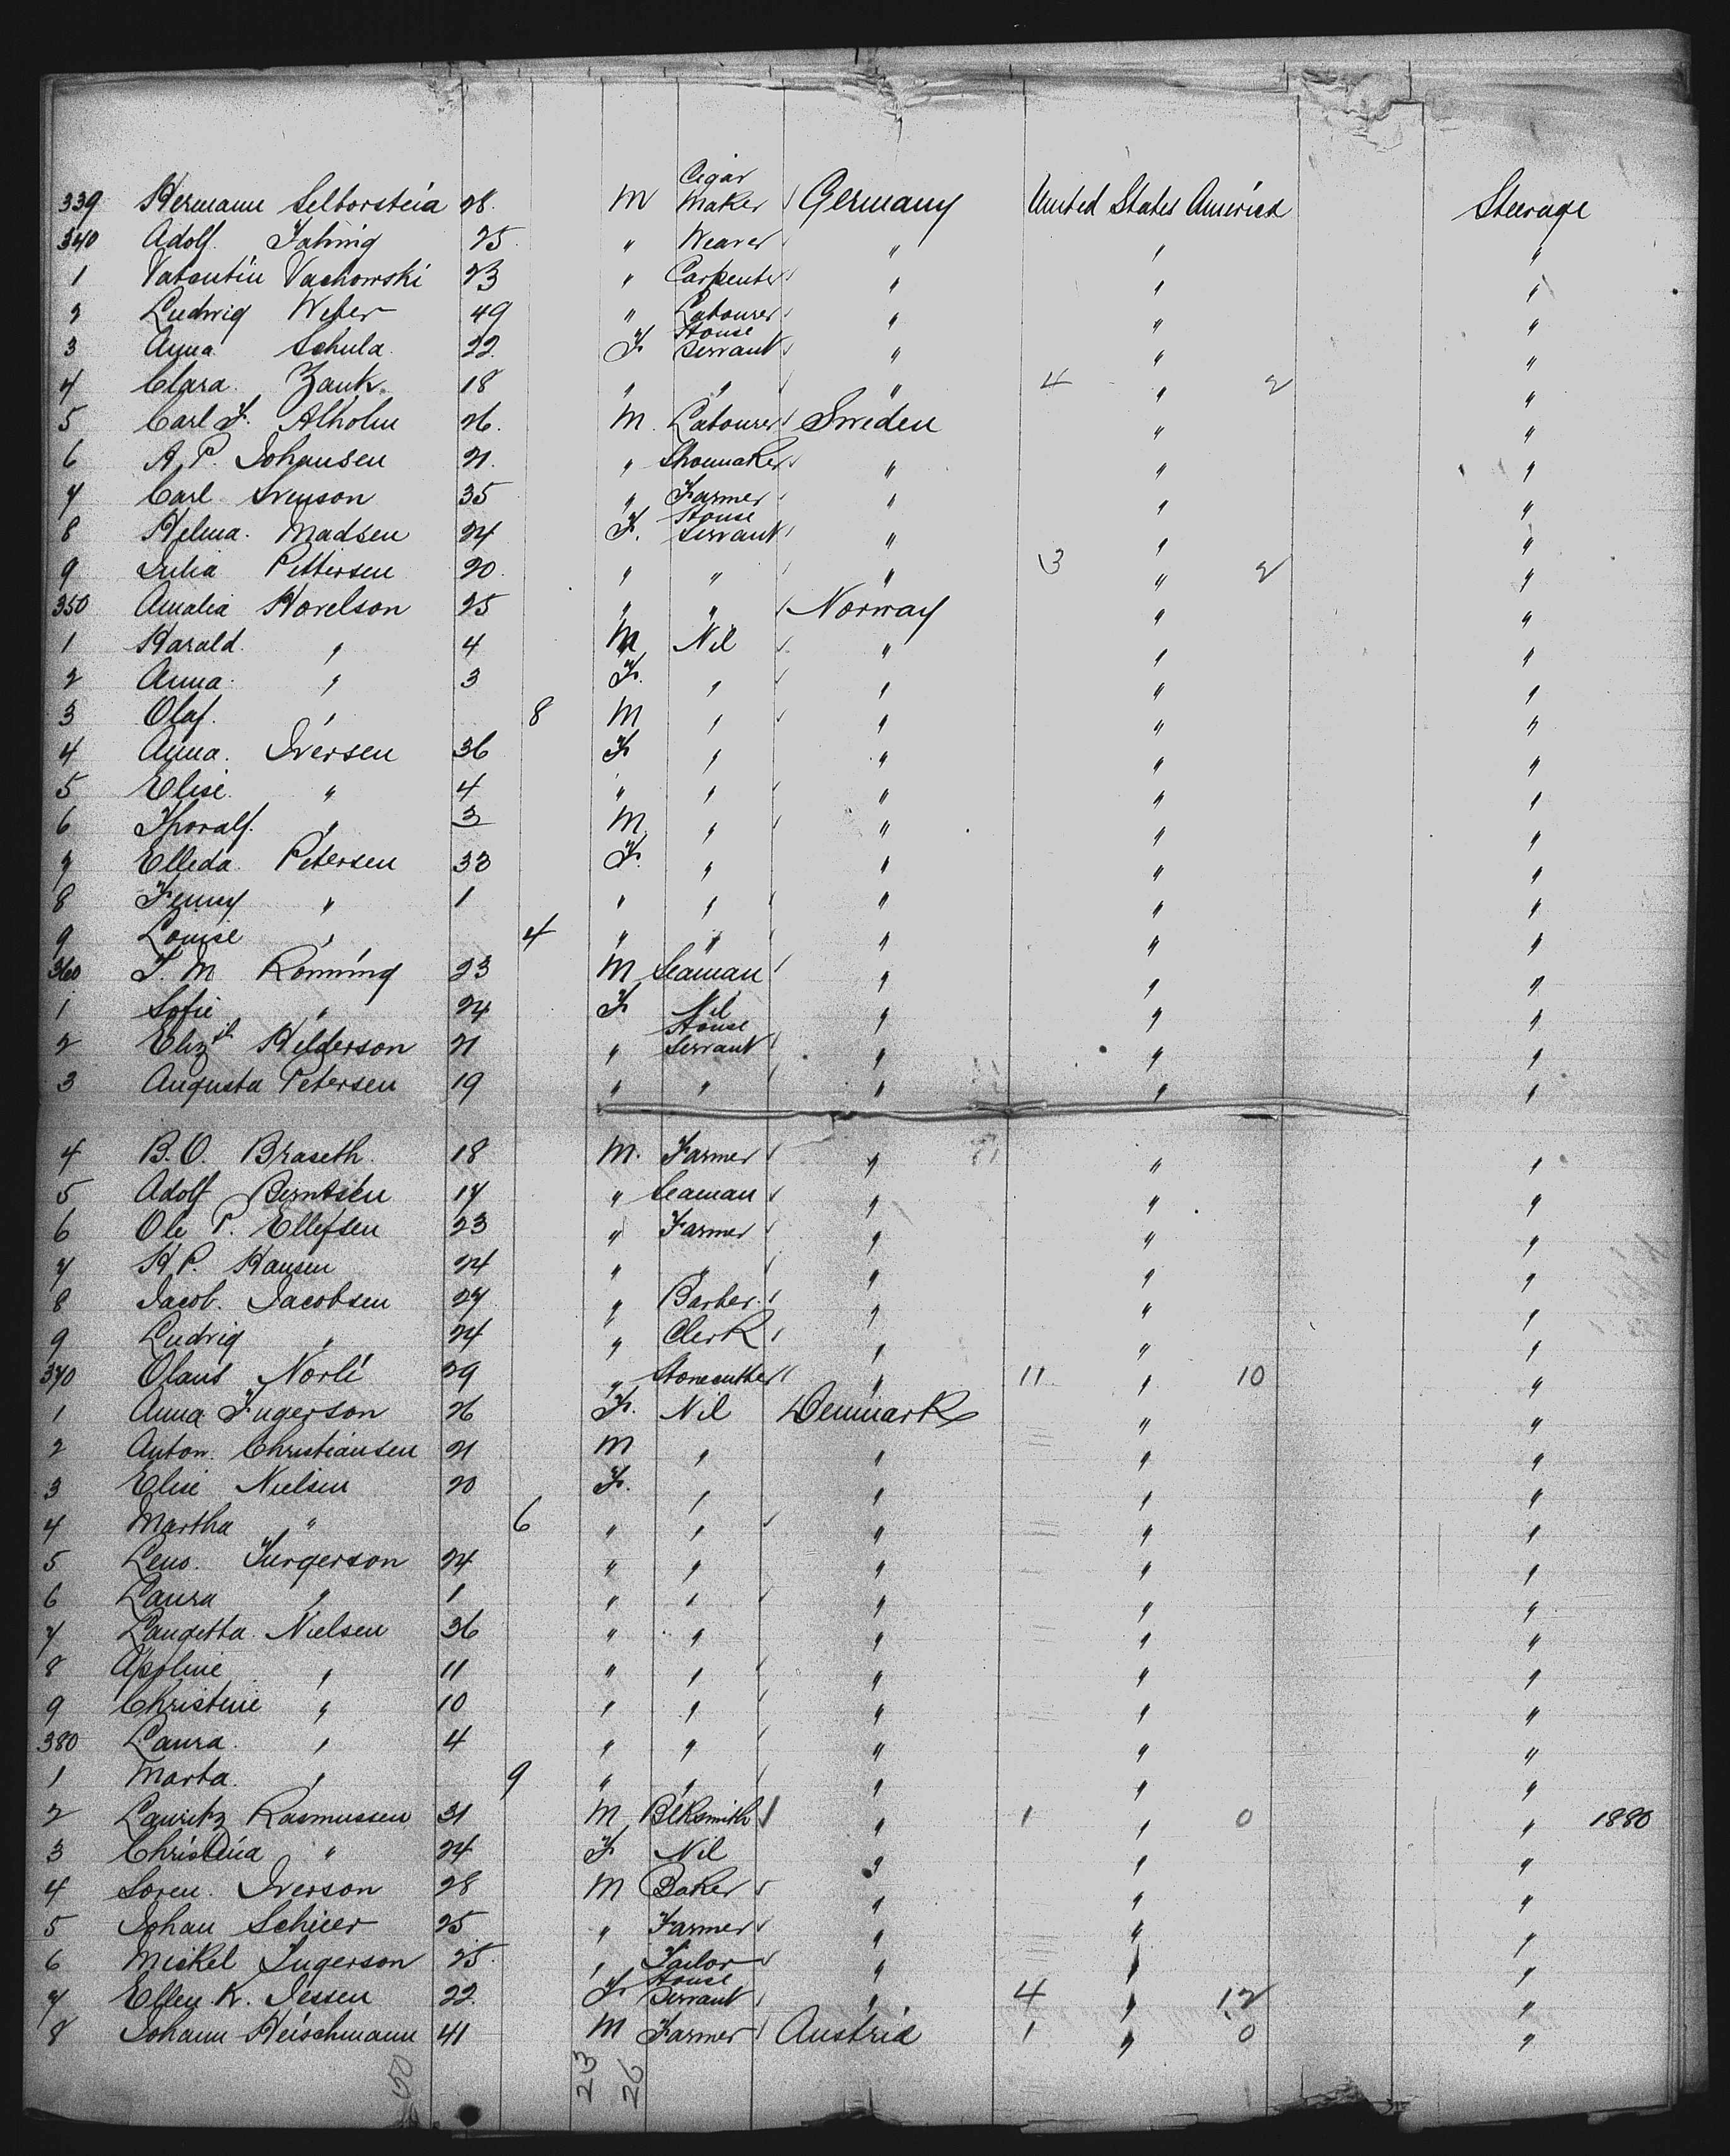 339 Hermann Selborstein 28 M Cigar Maker Germany United States America Steerage
340 Adolf Jahnig 25 " Weaver " " "
1 Valentin Vachowski 23 " Carpenter " " "
2 Ludwig Weber 49 " Labourer " " "
3 Anna Schula 22 F House Servant " " "
4 Clara Zank 18 " " " 4 " 2 "
5 Carl F. Alholm 26 M Labourer Sweden " "
6 A. P. Johansen 21 " Shoemaker " " "
7 Carl Svenson 35 " Farmer " " "
8 Helma Madsen 24 F. House Servant " " "
9 Julia Pettersen 20 " " " 3 " 2 "
350 Amalia Horelson 25 " " Norway " "
1 Harald " 4 M Nil " " "
2 Anna " 3 F. " " " "
3 Olaf " 8 M " " " "
4 Anna Iversen 36 F " " " "
5 Elise " 4 " " " " "
6 Thoralf " 3 M " " " "
7 Elleda Petersen 33 F. " " " "
8 Jenny " 1 " " " " "
9 Louise " 4 " " " " "
360 T. M Ronning 23 M Seaman " " "
1 Sofie " 24 F Nil " " "
2 Elizth Helderson 21 " House Servant " " "
3 Augusta Petersen 19 " " " " "
4 B. O. Braseth 18 M. Farmer " " "
5 Adolf Berntsen 17 " Seaman " " "
6 Ole P. Ellefsen 23 " Farmer " " "
7 H P. Hansen 24 " " " " "
8 Jacob Jacobsen 27 " Barber " " "
9 Ludvig " 24 " Clerk " " "
370 Olaus Norli 29 " Stonecutter " 11 " 10 "
1 Anna Ingerson 26 F. Nil Denmark " "
2 Anton Christiansen 21 M " " " "
3 Elise Nielsen 20 F. " " " "
4 Martha " 6 " " " " "
5 Lens Jurgerson 24 " " " " "
6 Laura " 1 " " " " "
7 Laugetta Nielsen 36 " " " " "
8 Apoline " 11 " " " " "
9 Christine " 10 " " " " "
380 Laura " 4 " " " " "
1 Marta " 9 " " " " "
2 Lauritz Rasmussen 31 M Blksmith " 1 " 0 " 1880
3 Christina " 24 F Nil " " "
4 Soren Iverson 28 M Baker " " "
5 Johan Schier 25 " Farmer " " "
6 Mickel Ingerson 25 " Tailor " " "
7 Ellen K. Jessen 22 F House Servant " 4 " 12 "
8 Johann Heischmann 41 M Farmer Austria 1 " 0 "
50 23 26